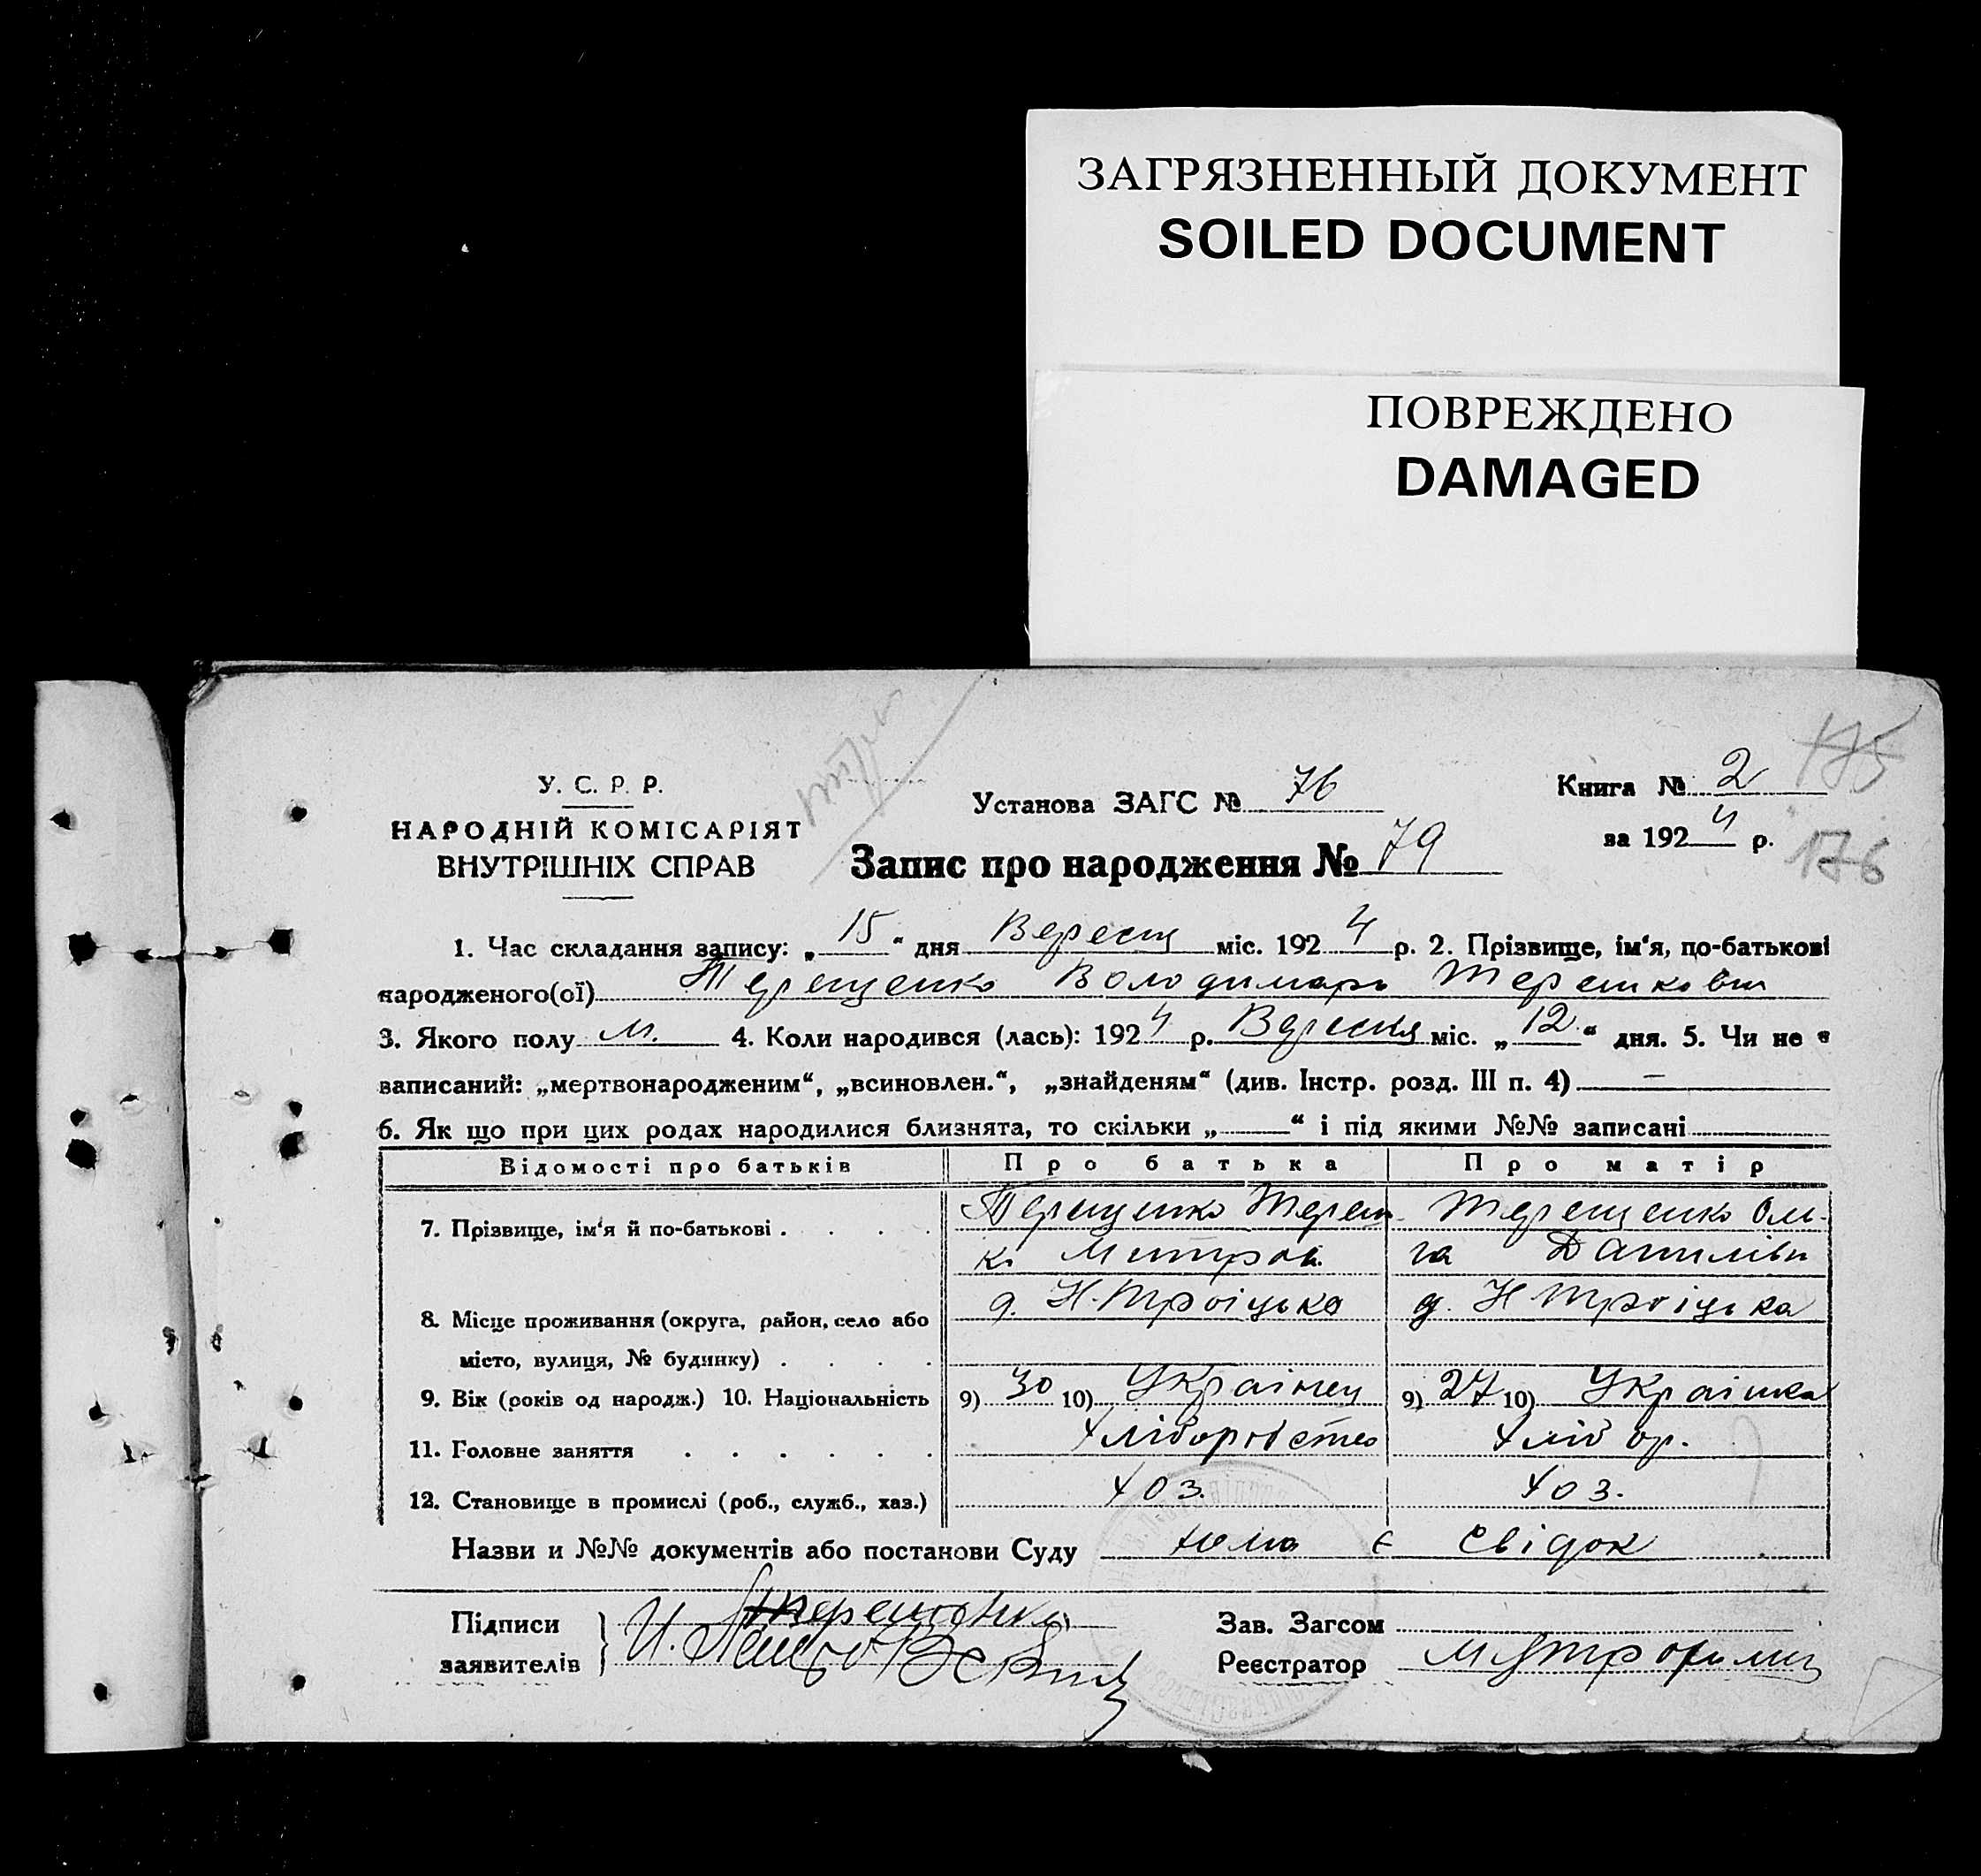 ЗАГРЯЗНЕННЫЙ ДОКУМЕНТ
SOILED DOCUMENT
ПОВРЕЖДЕНО
DAMAGED
175
176
У. С. Р. Р.
НАРОДНІЙ КОМІСАРІЯТ
ВНУТРІШНІХ СПРАВ
Установа ЗАГС № 76
Книга № 2
за 1924 р.
Запис про народження № 79
1. Час складання запису: „15“ дня Вересня міс. 1924 р. 2. Прізвище, ім‘я, по-батькові
народженого(ої) Терещенко Володимирь Терешкович
3. Якого полу м. 4. Коли народився (лась): 1924 р. Вересня міс. „12“ дня. 5. Чи не є
записаний: „мертвонародженим“, „всиновлен.“, „знайденям“ (див. Інстр. розд. III п. 4) —
6. Як що при цих родах народилися близнята, то скільки „ “ і під якими №№ записані
Відомості про батьків Про батька Про матір
7. Прізвище, ім‘я й по-батькові . . . . Терещенко Тереш- Терещенко Оль-
ко Митров. га Данилівн
8. Місце проживання (округа, район, село або д. Н-Троіцька д. Н Троіцька
місто, вулиця, № будинку) . . . .
9. Вік (років од народж.) 10. Національність 9) 30 10) Украінец 9) 27 10) Украінка
11. Головне заняття . . . . . . Хліборобство Хлібор.
12. Становище в промислі (роб., служб., хаз.) хоз. хоз.
Назви и №№ документів або постанови Суду нема є свідок
Підписи
заявителів
Зав. Загсом
Реєстратор